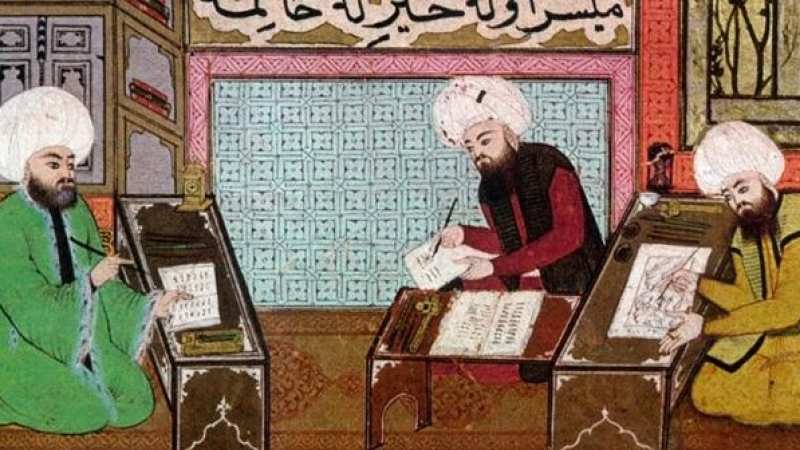 ميسر اوله خيرله خاتمه